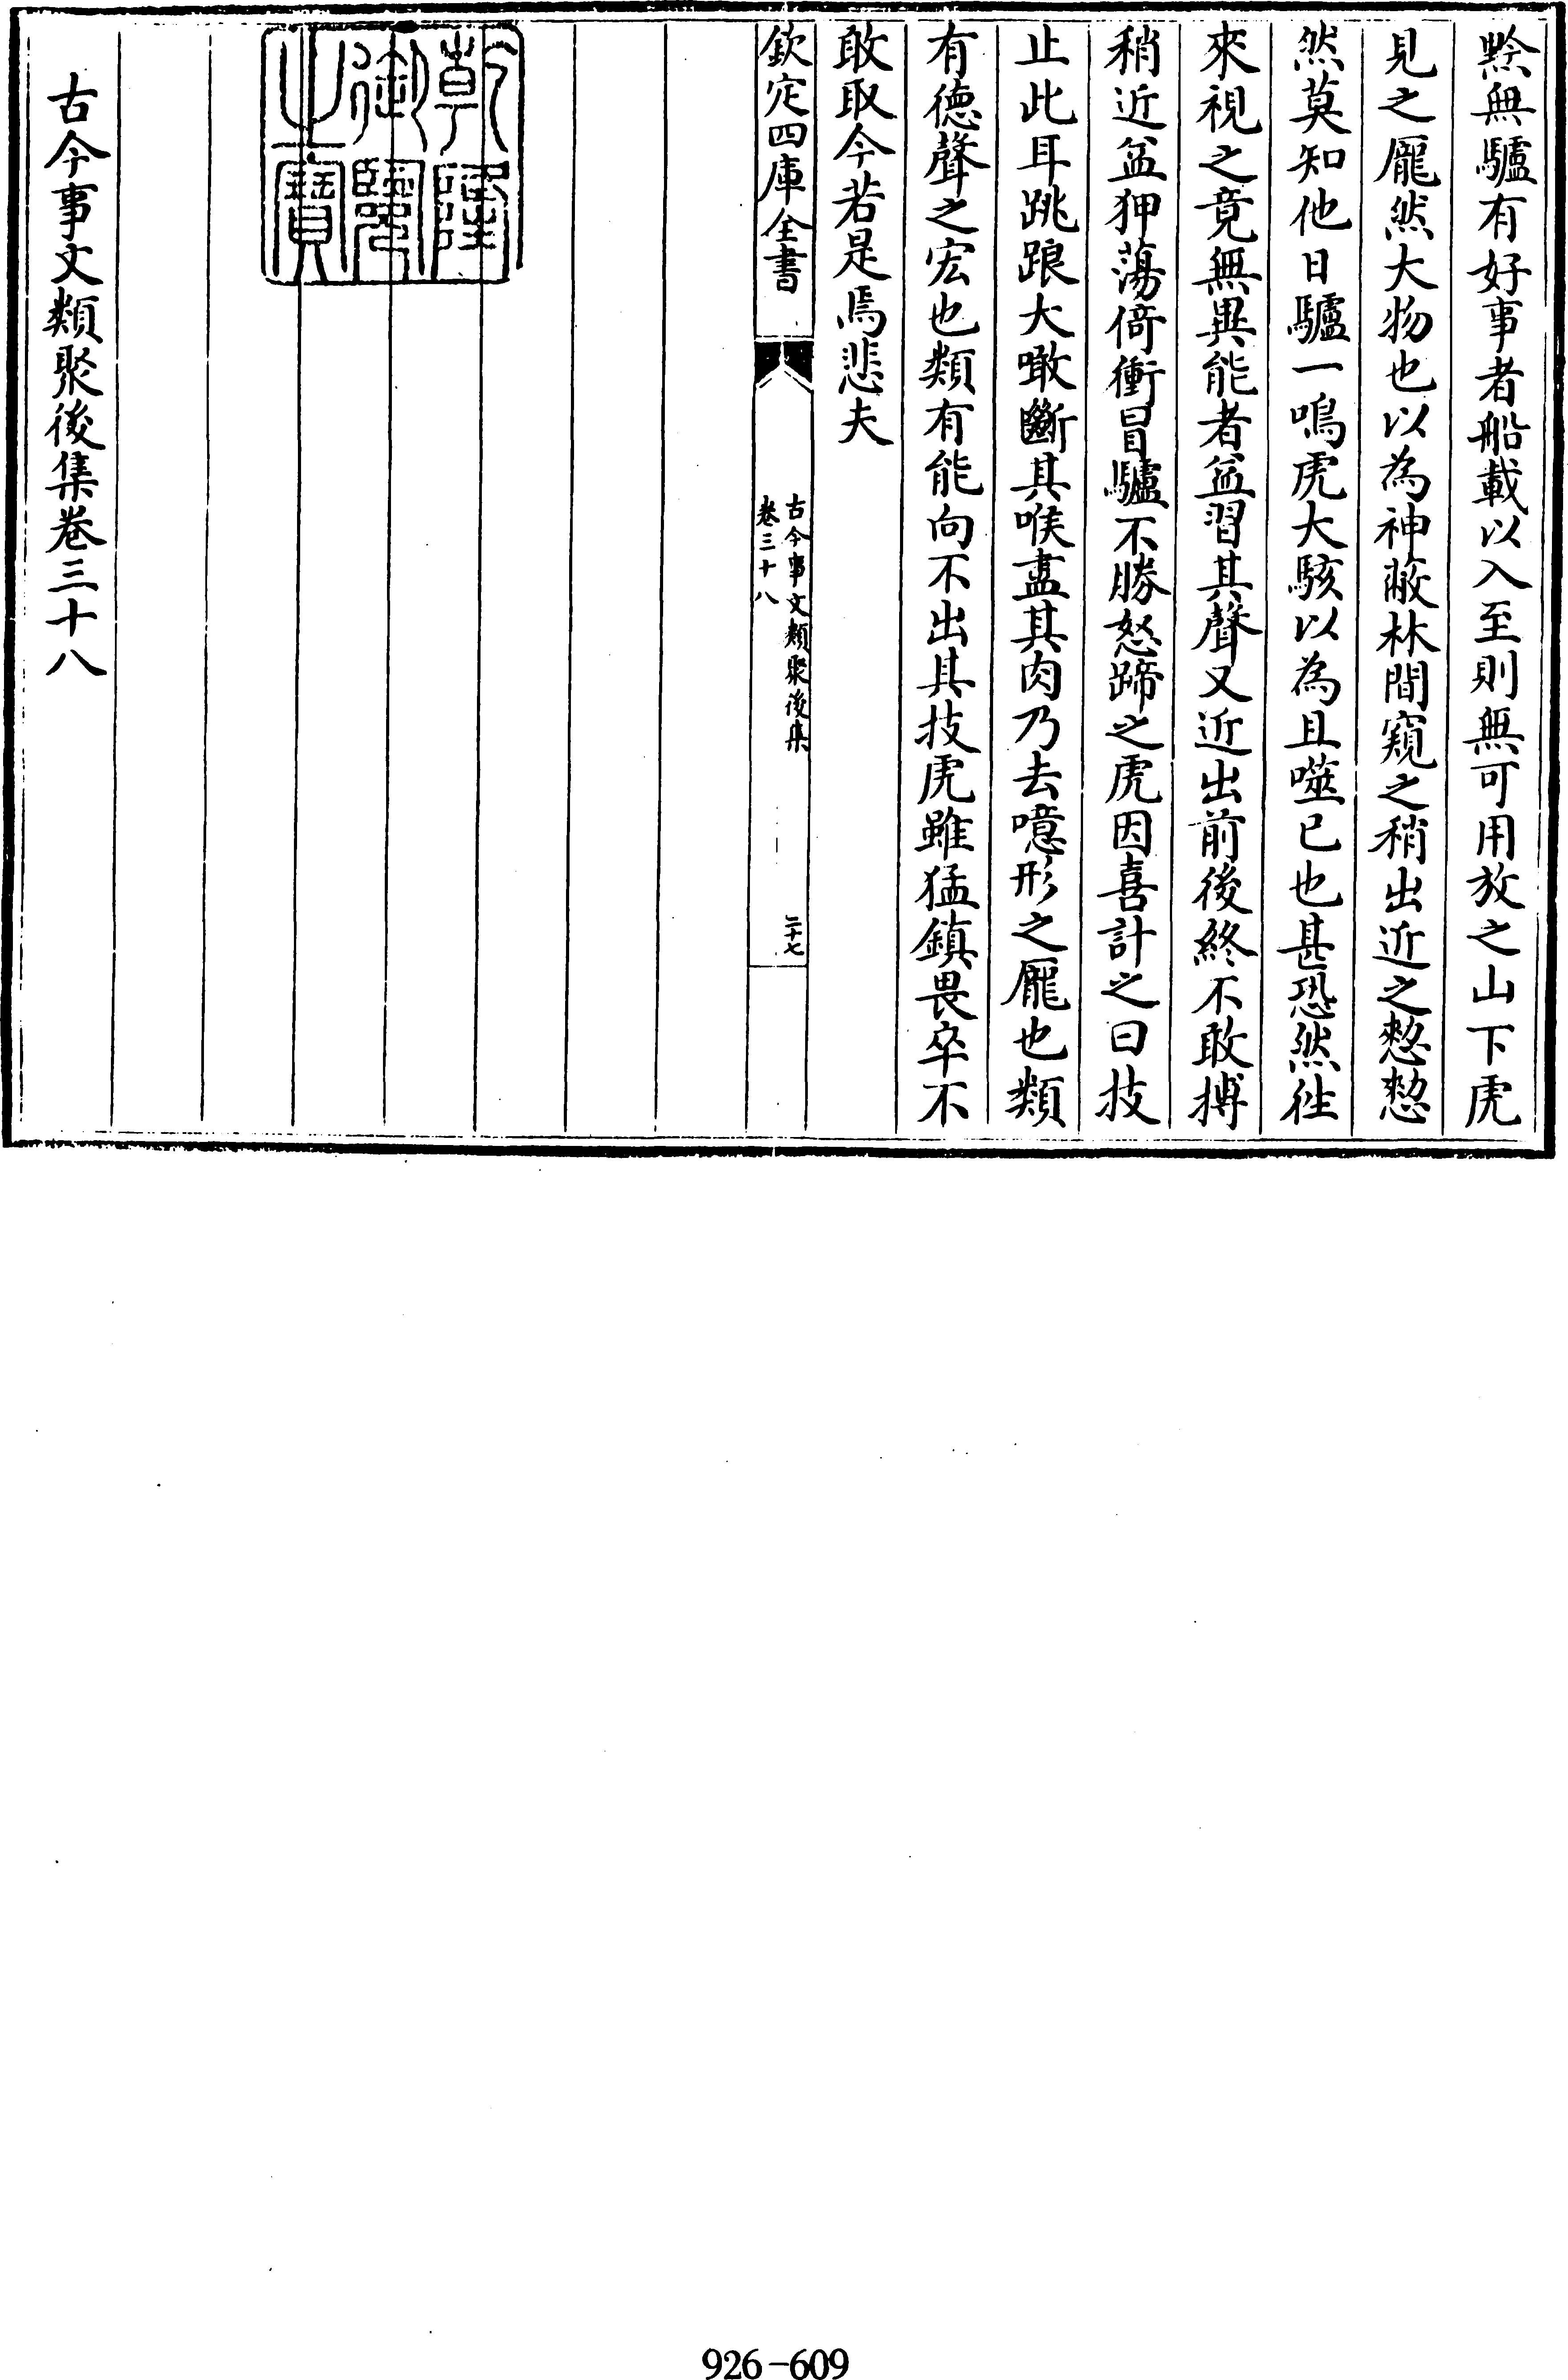 黔無驢有好事者船載以入至則無可用放之山下虎
見之龎然大物也以為神蔽林間窺之稍出近之憖憖
然莫知他日驢一鳴虎大駭以為且噬已也甚恐然徃
來視之竟無異能者益習其聲又近出前後終不敢搏
稍近益狎蕩倚衝冒驢不勝怒蹄之虎因喜計之曰技
止此耳跳踉大㘚斷其喉盡其肉乃去噫形之龎也類
有德聲之宏也類有能向不出其技虎雖猛鎮畏卒不
敢取今若是焉悲夫
欽定四庫全書
古今事文類聚後集
卷三十八
二十七
乾隆
御覽
之寶
古今事文類聚後集卷三十八
926-609